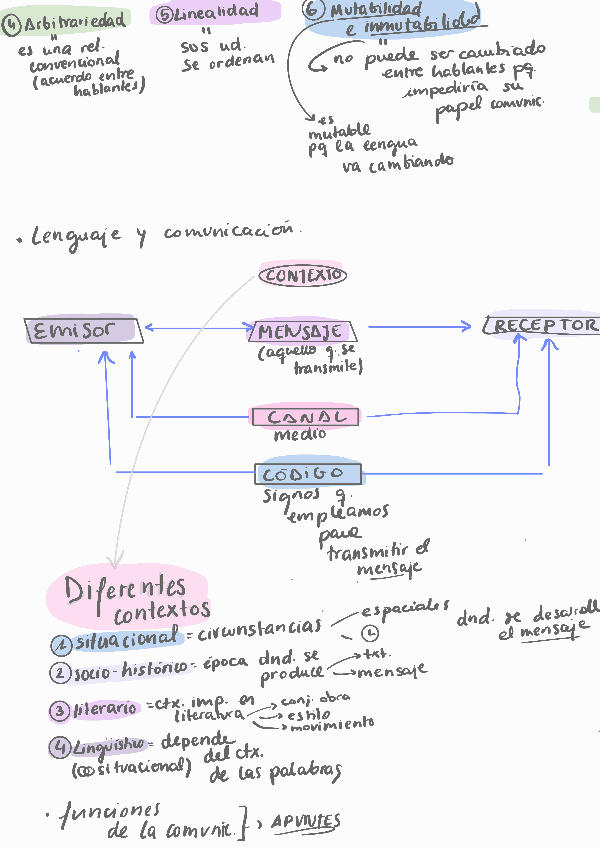 ④ Arbitrariedad
es una rel.
convencional
(acuerdo entre
hablantes)
⑤ Linealidad
sus ud.
se ordenan
⑥ Mutabilidad
e inmutabilidad
no puede ser cambiado
entre hablantes pq
impediría su
papel comunic.
es
mutable
pq la lengua
va cambiando
• Lenguaje y comunicación.
CONTEXTO
EMISOR
MENSAJE
RECEPTOR
(aquello q. se
transmite)
CANAL
medio
CÓDIGO
signos q.
empleamos
para
transmitir el
mensaje
Diferentes
contextos
① situacional = circunstancias
espaciales
dnd. se desarroll
el mensaje
② socio-histórico = época dnd. se
produce
txt.
mensaje
③ literario = ctx. imp. en
literatura
conj. obra
estilo
movimiento
④ Lingüístico = depende
del ctx.
de las palabras
situacional)
• funciones
de la comunic.
APUNTES